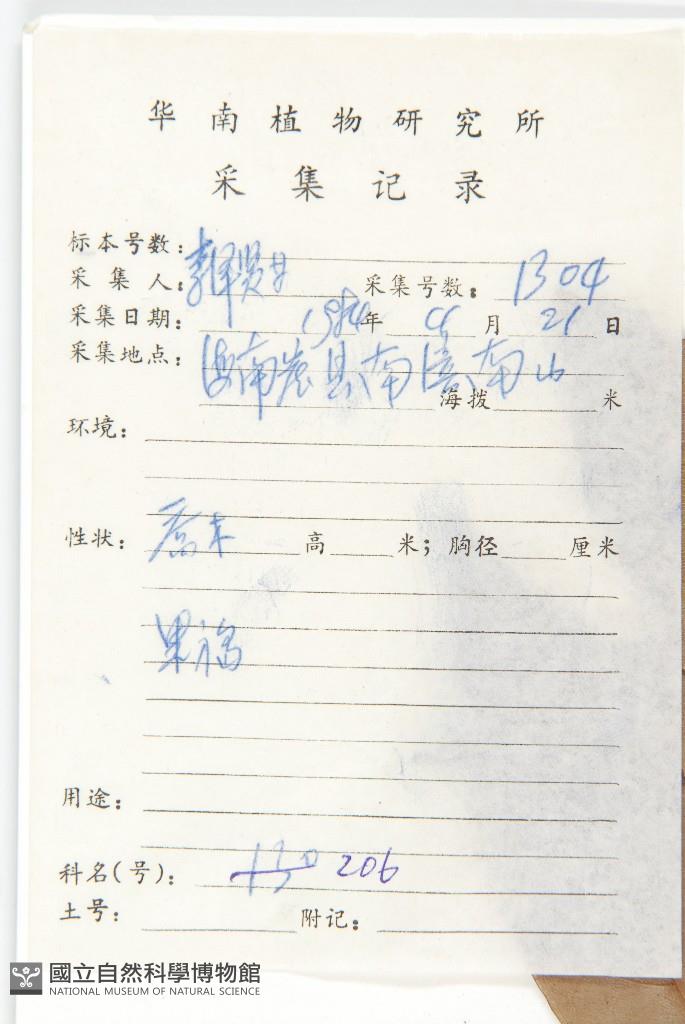 华南植物研究所
采集记录
标本号数：
采集人： 采集号数： 1304
采集日期： 年 月 21 日
采集地点： 海南崖县南 南山
海拨 米
环境：
性状： 乔木 高 米；胸径 厘米
果
用途：
科名(号)： 130 206
土号： 附记：
國立自然科學博物館
NATIONAL MUSEUM OF NATURAL SCIENCE